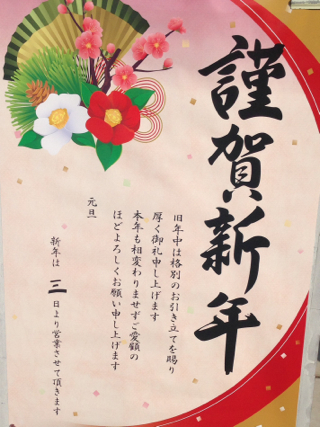 謹賀新年
旧年中は格別のお引き立てを賜り
厚く御礼申し上げます
本年も相変わりませずご愛顧の
ほどよろしくお願い申し上げます
元旦
新年は 三 日より営業させて頂きます